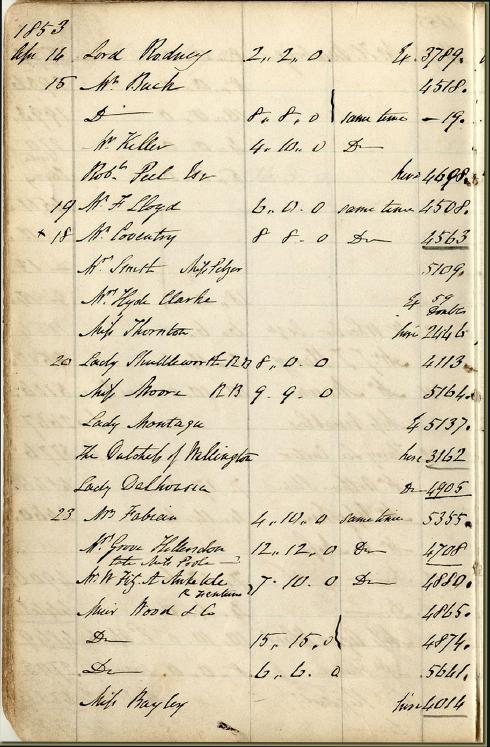 1853
Apr 14 Lord Rodney 2,, 2,, 0 Ex 3789.
15 Mr Buck 4518.
Do 8,, 8,, 0 same time – 19.
Mr Keller 4,, 10,, 0 Do
Robt Peel Esr hire 4698.
19 Mr F Lloyd 6,, 0,, 0 same time 4508.
x 18 Mr Coventry 8 8,, 0 Do 4563
Mrs Smith Miss 5109.
Mrs Hyde Clarke Ex 59 Double
Miss Thornton hire 2446
20 Lady Shuttleworth 8,, 0,, 0 4113
Miss Moore 9,, 9,, 0 5164.
Lady Montagu Ex 5137.
The Dutchess of Wellington hire 3162
Lady Dalhousia Do 4905
23 Mrs Fabian 4,, 10,, 0 same time 5355.
Mrs Grove 12,, 12,, 0 Do 4708
late Miss Poole
Mr W Fitz A 7,, 10,, 0 Do 4880.
Muir Wood & Co 4865.
Do 15,, 15,, 0 4874.
Do 6,, 6,, 0 5641.
Miss Bayley hire 4014